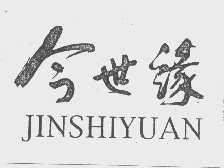 今世缘
JINSHIYUAN